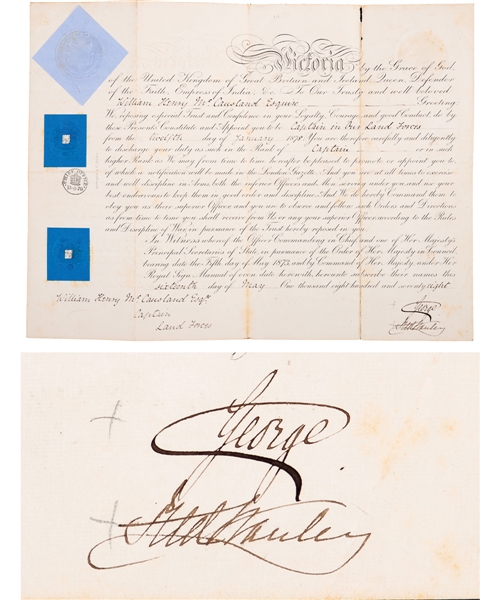 Victoria by the Grace of God,
of the United Kingdom of Great Britain and Ireland Queen, Defender
of the Faith, Empress of India, &c. To Our Trusty and well beloved
William Henry McCausland Esquire Greeting.
We reposing especial Trust and Confidence in your Loyalty, Courage and good Conduct do by
these Presents Constitute and Appoint you to be Captain in Our Land Forces
from the day of February 1878. You are therefore carefully and diligently
to discharge your duty as such in the Rank of Captain or in such
higher Rank as We may from time to time hereafter be pleased to promote or appoint you to,
of which a notification will be made in the London Gazette. And you are at all times to exercise
and well discipline in Arms, both the inferior Officers and Men serving under you, and use your
best endeavours to keep them in good Order and discipline. And We do hereby Command them to
obey you as their superior Officer and you to observe and follow such Orders and Directions
as from time to time you shall receive from Us or any your superior Officer according to the Rules
and Discipline of War, in pursuance of the Trust hereby reposed in you.
In Witness whereof the Officer Commanding in Chief, and one of Her Majesty's
Principal Secretaries of State, in pursuance of the Order of Her Majesty in Council,
bearing date the Fifth day of May 1873, and by Command of Her Majesty, and under Her
Royal Sign Manual of even date herewith, hereunto subscribe their names this
sixteenth day of May One thousand eight hundred and seventy eight
William Henry McCausland Esqre.
Captain
Land Forces
George
Fred Stanley
George
Fred Stanley